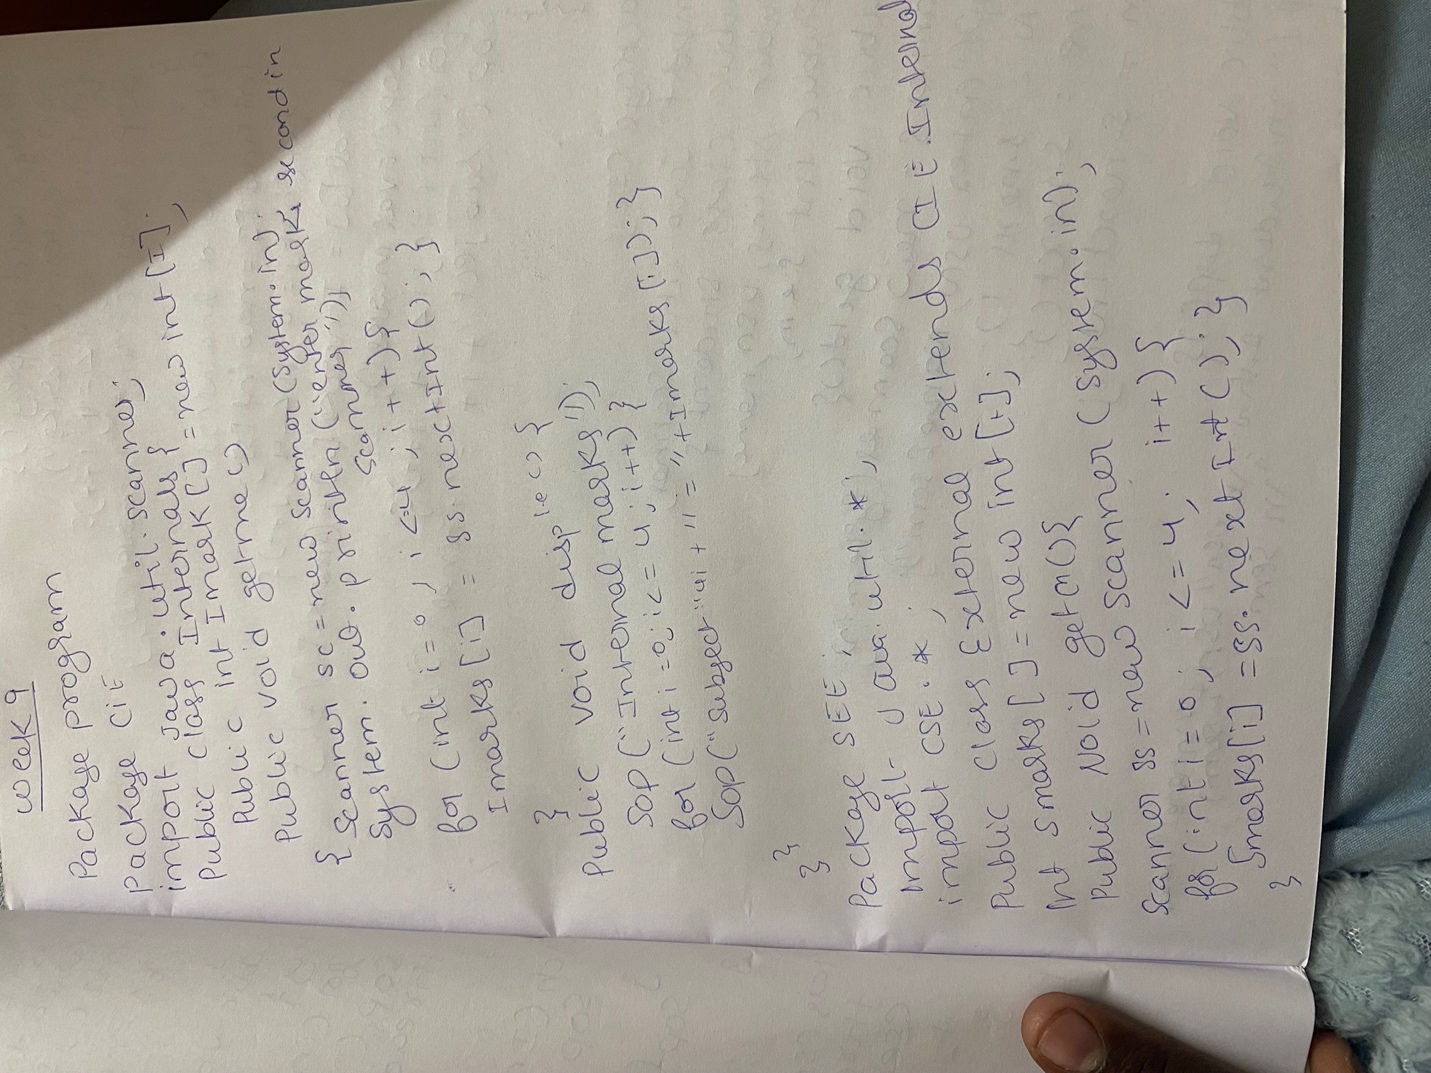 week 9
Package program
Package CiE
import Java.util.scanner;
Public class Internals{
Public int Imark[] = new int [I];
Public void getme()
{ Scanner sc = new scanner(System.in);
System.out.println("enter marks second in
scanner");
for (int i=0; i<=4; i++){
Imarks[i] = ss.nextInt(); }
}
Public void disp1e() {
Sop("Internal marks");
for (int i=0; i<=4; i++) {
Sop("Subject"+i+"="+Imarks[i]); }
}
}
Package SEE;
Import java.util.*;
import CSE.*;
Public class External extends CIE Internal
Int smarks[] = new int[4];
Public Void getm(){
Scanner ss = new Scanner(System.in);
for(int i=0; i<=4; i++) {
Smarks[i] = ss.nextInt(); }
}